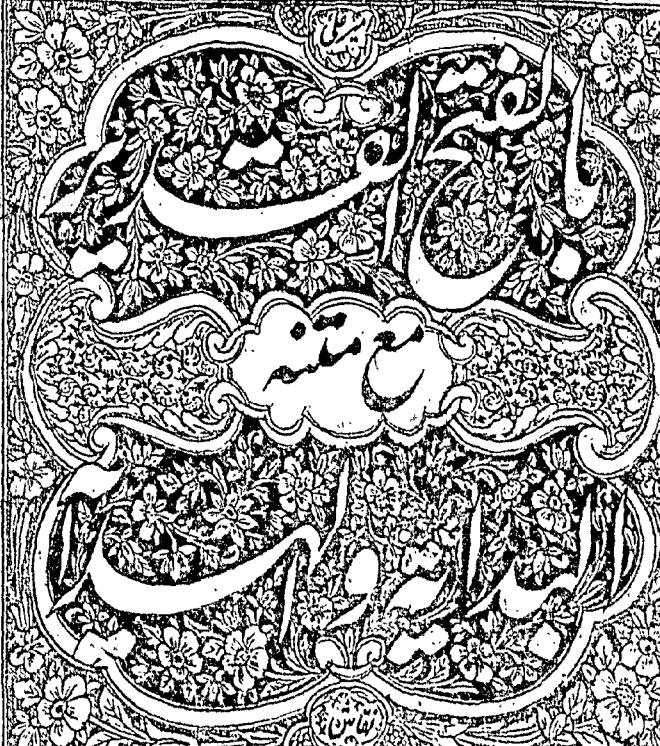 بالفتح القدير
مع متنه
البداية والهداية
نقاش